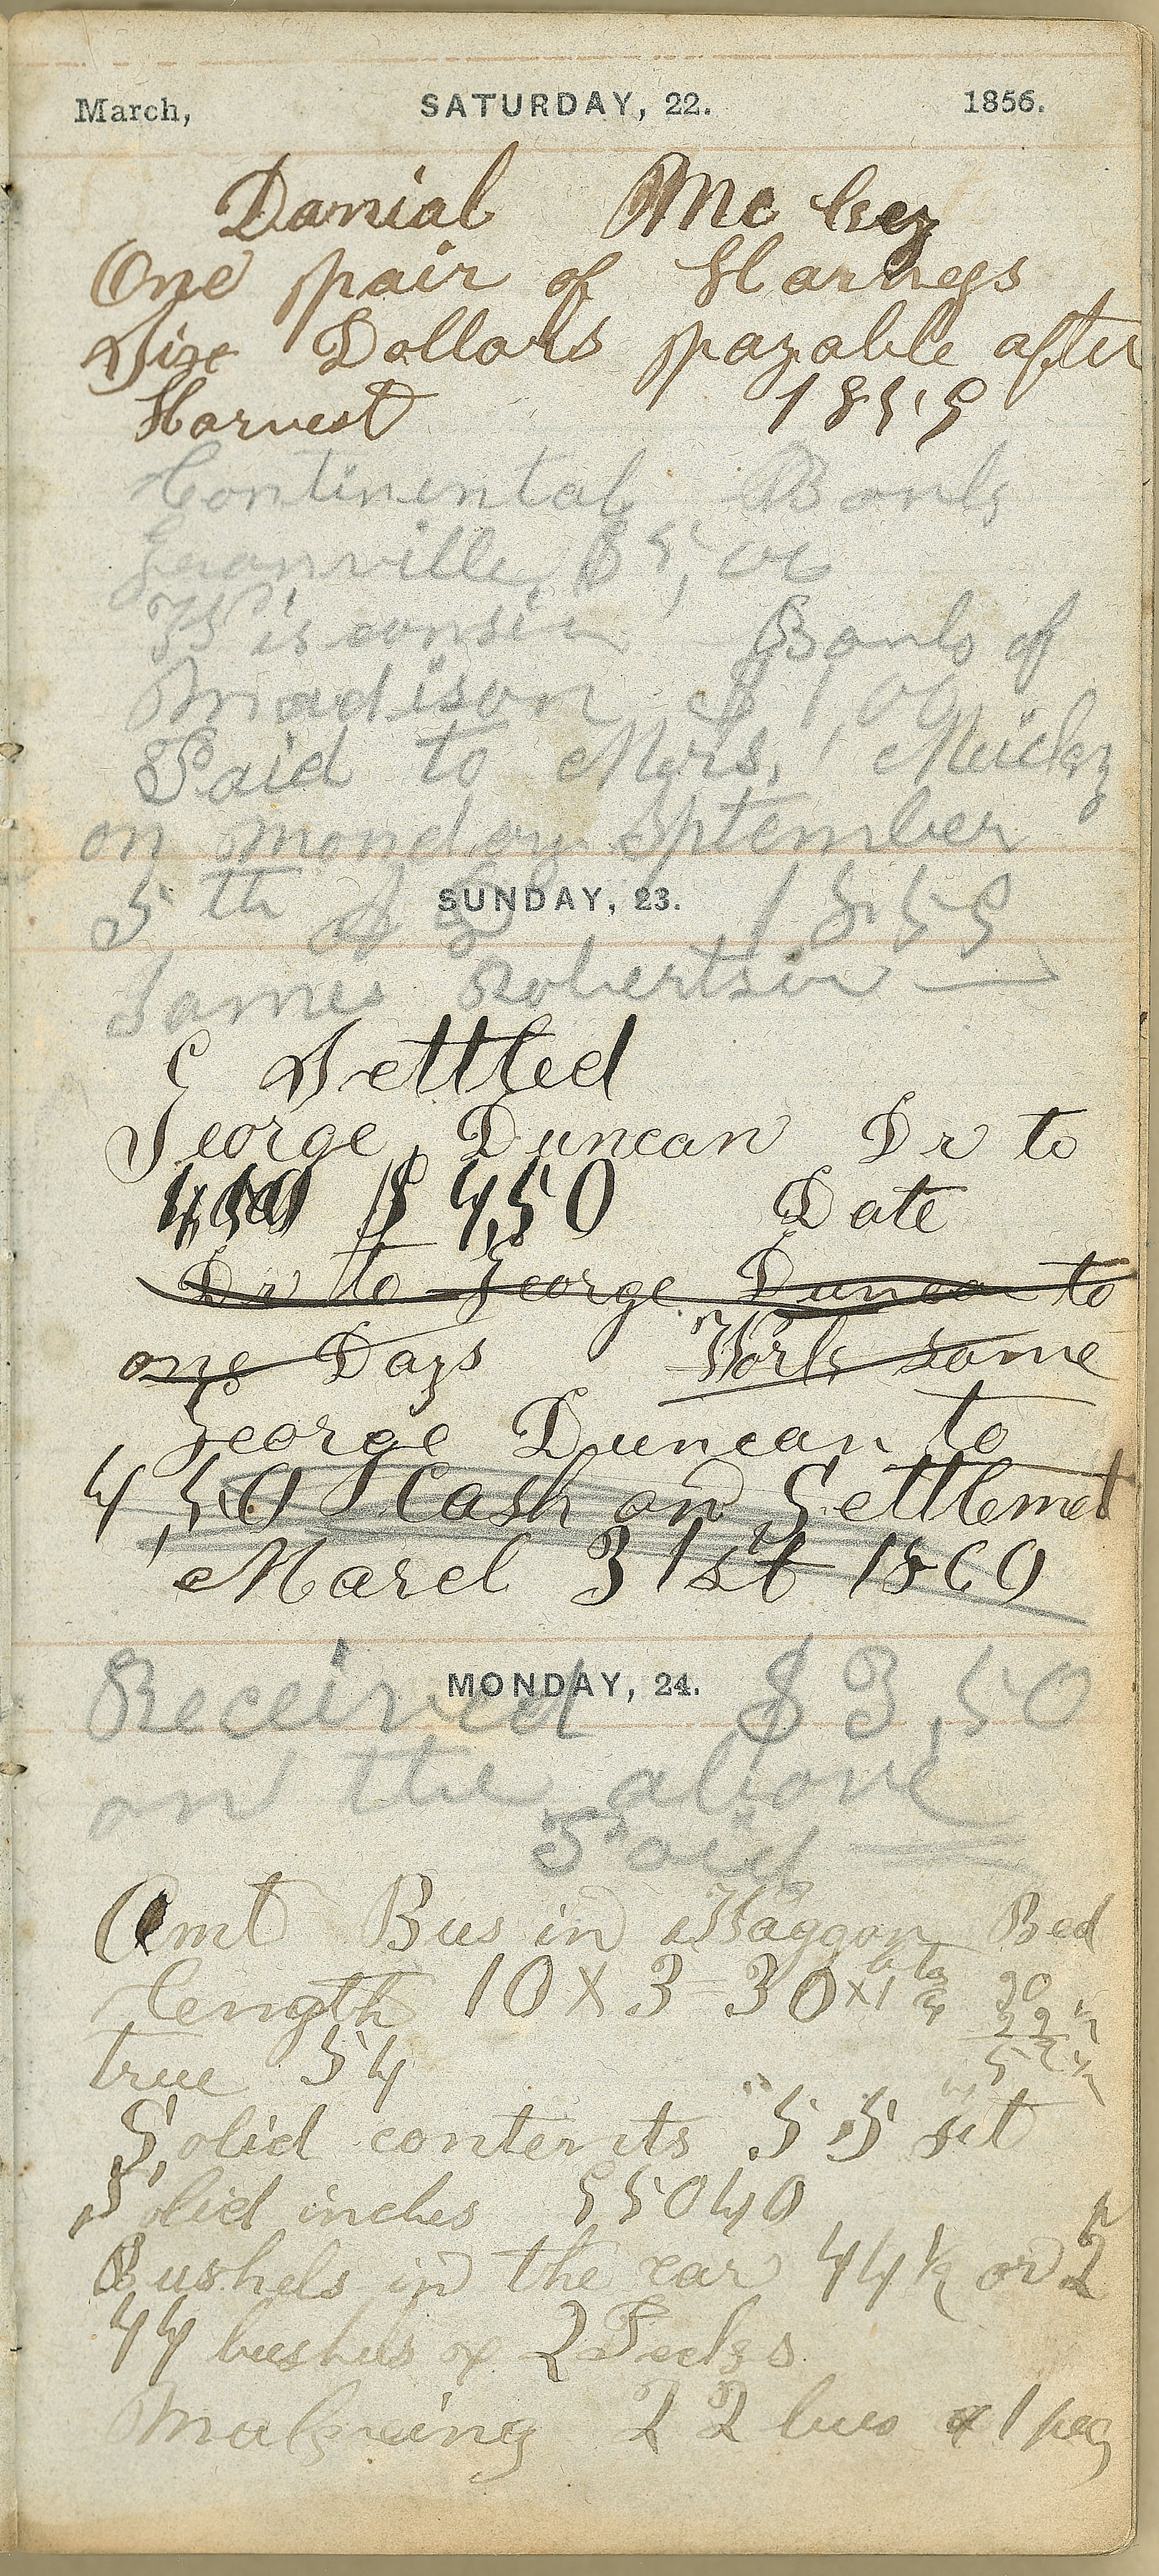 March, SATURDAY, 22. 1856.
Danial Mc
One pair of Harness
Six Dollars payable after
Harvest 1859
Continental Bank
Granville $5,00
Wisconsin Bank of
Madison $1,00
Paid to Mrs, Mickey
on monday September
5th 1859
SUNDAY, 23.
James Robertson
Settled
George Duncan Dr to
$4,50 Date
Dr to George Duncan to
one Days Work some
George Duncan to
4,50 Cash on Settlemet
March 31st 1860
MONDAY, 24.
Received $3,50
on the above
Paid
Amt Bus in Waggon Bed
length 10 x 3 = 30 x 1
true 54
Solid contents 55
Solid inches 95040
Bushels in the ear 44 1/2 or
44 bushels & 2 Pecks
Makeing 22 bus & 1 peg